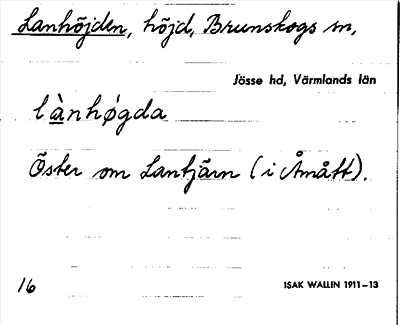 Lanhöjden, höjd, Brunskogs sn,
Jösse hd, Värmlands län
lànhǿgda
Öster om Lantjärn (i Åmått).
16
ISAK WALLIN 1911–13